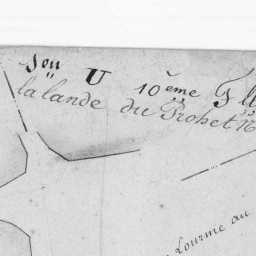 Son U 10eme F
la lande du Prohet
Lourme au